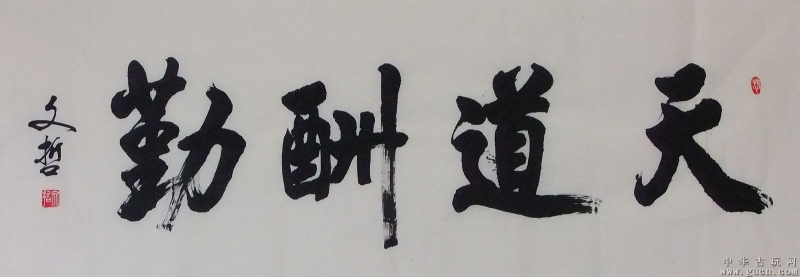 天道酬勤
文哲
中华古玩网
www.gucn.com